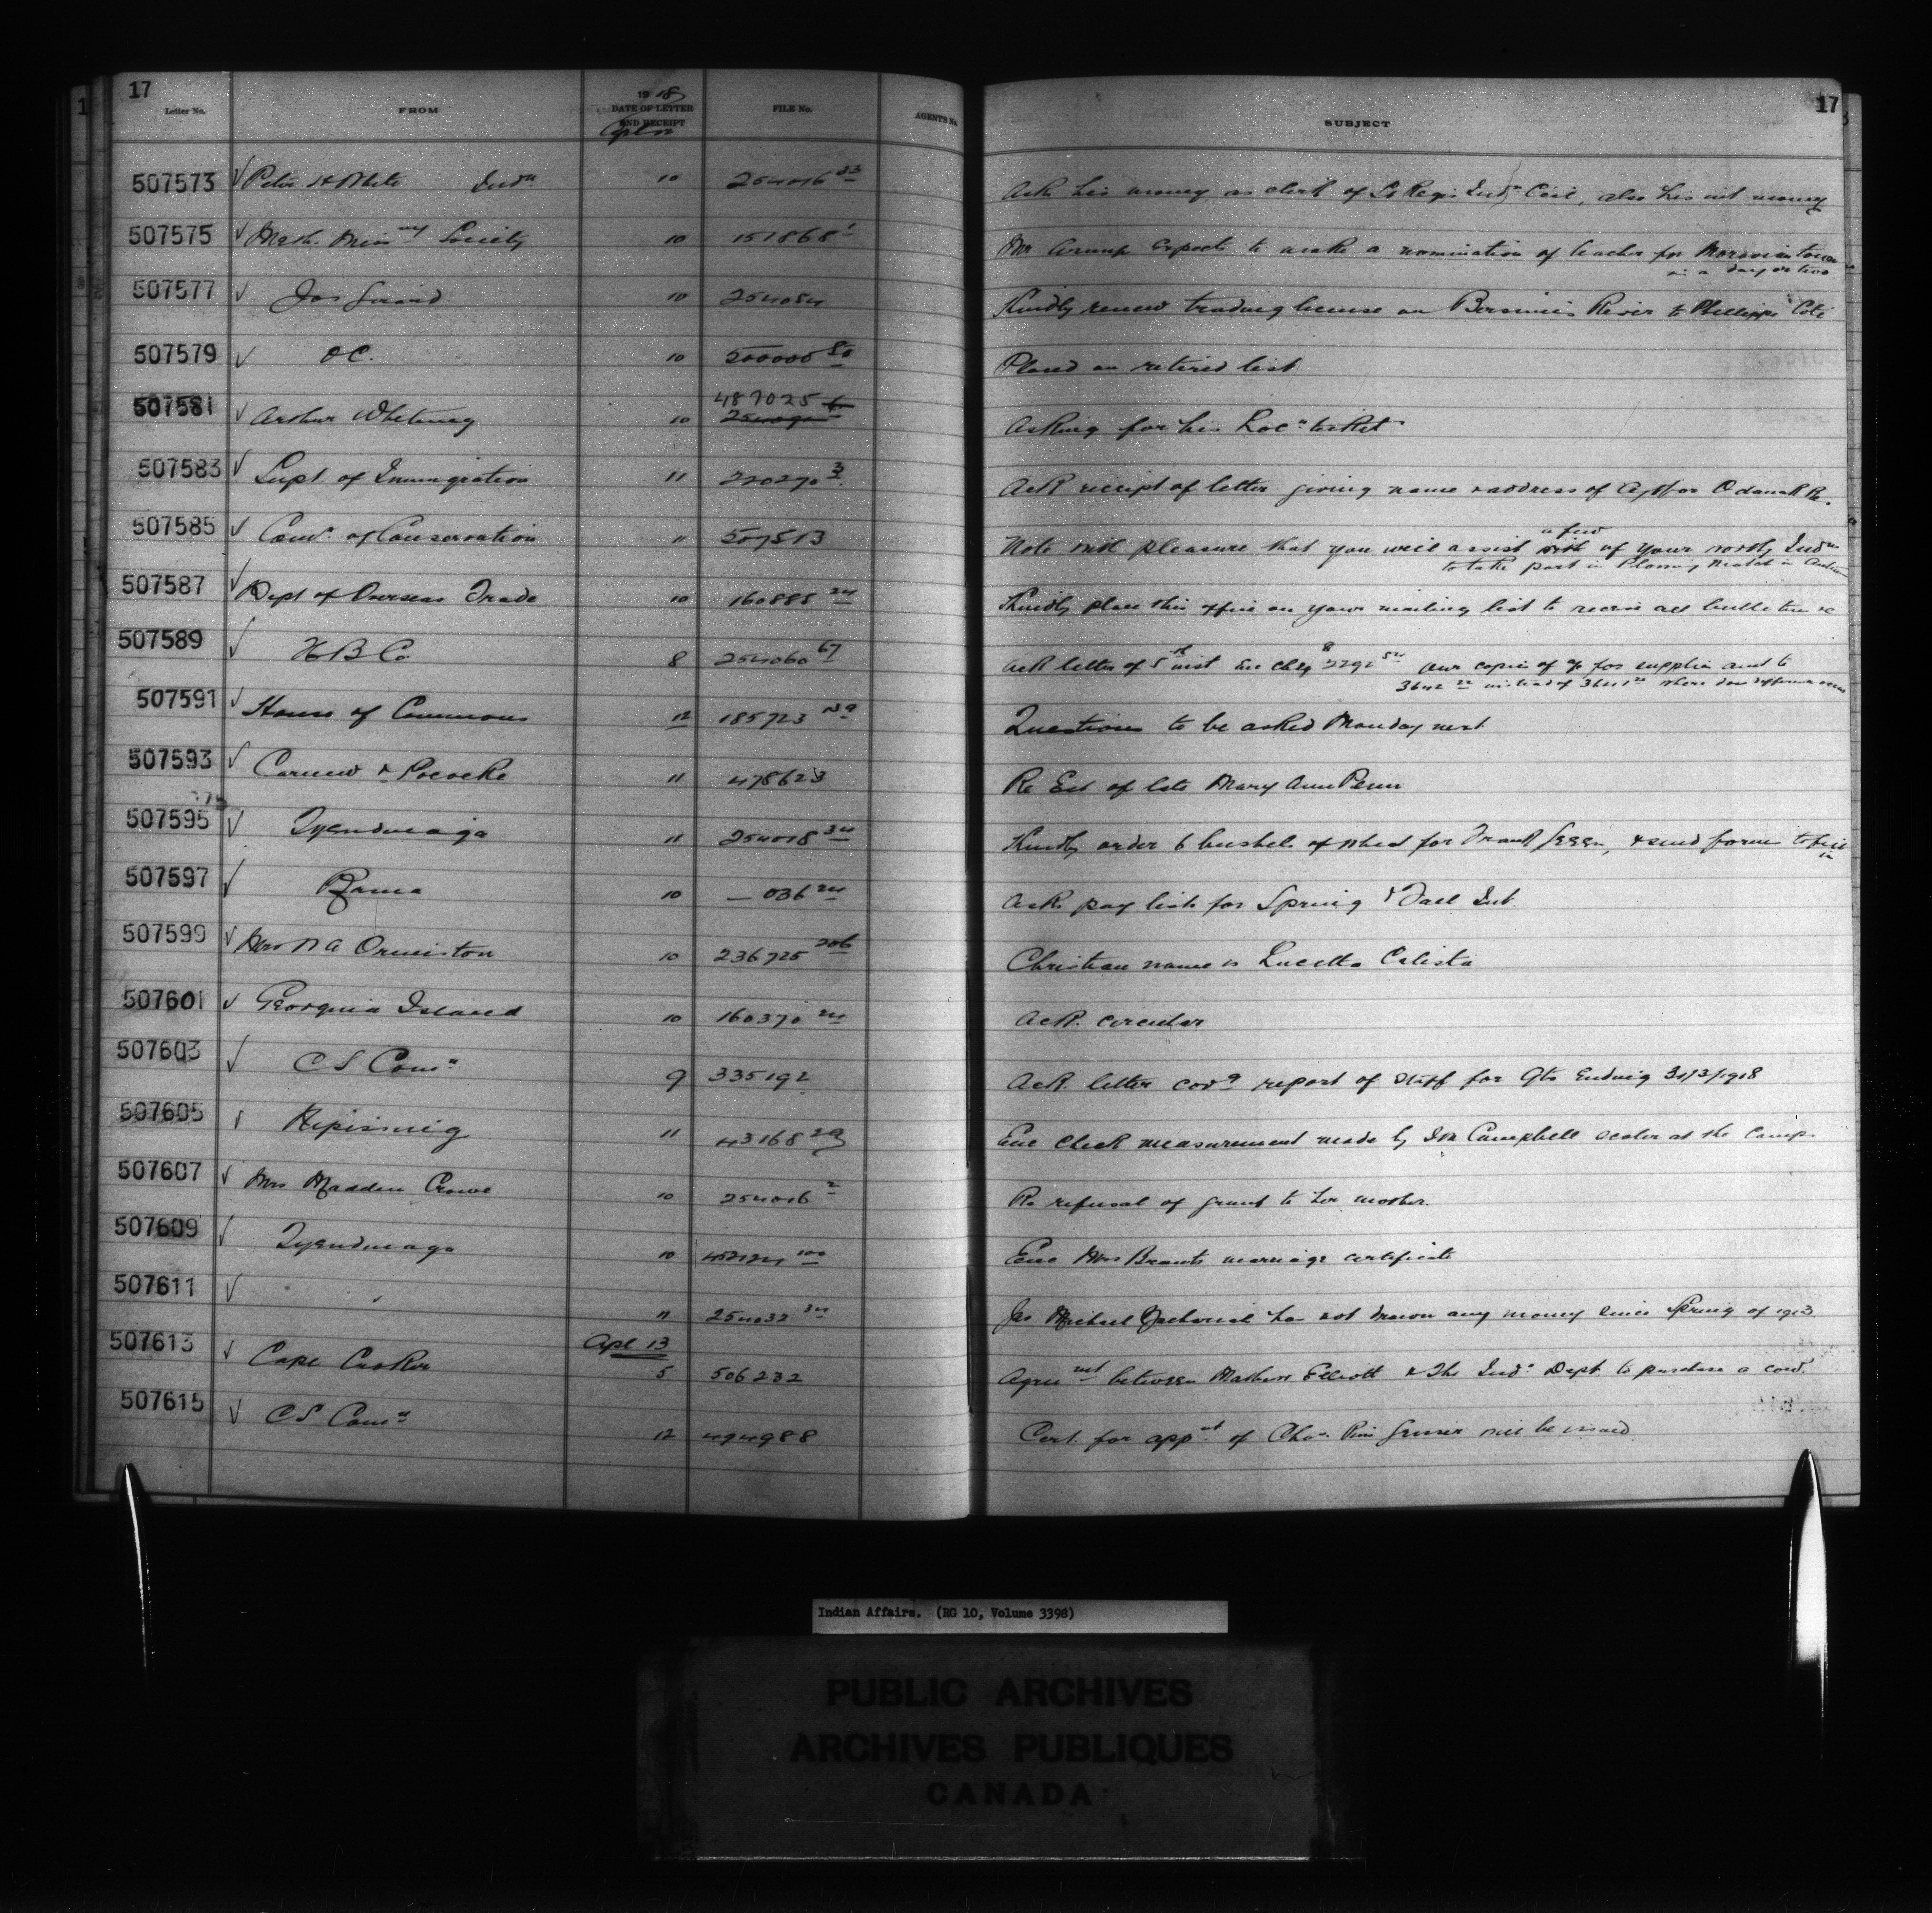 17
17
Letter No. FROM 1918 DATE OF LETTER AND RECEIPT FILE No. AGENT'S No. SUBJECT
507573 Peter H White Indn 10 254016 23 Ask his money as clerk of St Regis Indn Ccil, also his int money
507575 Meth. Missny Society 10 151868 1 Mr expects to make a nomination of teacher for Moraviantown
in a day or two
507577 Jos Girard 10 254054 Kindly renew trading license on Bersimis River to Phillippe Coté
507579 O C. 10 500000 50 Placed on retired list
487025
507581 Arthur Whitney 10 Asking for his Locn ticket
507583 Supt of Immigration 11 220270 3 Ack receipt of letter giving name & address of Agt for Odanak Re.
a few
507585 Comn of Conservation 11 507513 Note with pleasure that you will assist of your north Indns
to take part in Plowing Match in
507587 Dept of Overseas Trade 10 160885 24 Kindly place this office on your mailing list to receive all bulletins &c
507589 H B Co 8 254060 67 Ack letter of 5th inst Enc chq our copies of a/c for supplies amt to
instead of where does difference occur
507591 House of Commons 12 185723 Questions to be asked Monday next
507593 Carnew & Pocoke 11 478623 Re Est of late Mary Ann Penn
507595 Tyendinaga 11 254018 34 Kindly order 6 bushels of wheat for Frank Green, & send form to fill
in
507597 Rama 10 — 036 24 Ack pay lists for Spring & Fall Int.
507599 Mrs N A Ormiston 10 236725 206 Christian name is Lucetta Calista
507601 Georgina Island 10 160370 24 Ack. circular
507603 C S Comn 9 335192 Ack. letter covg report of Staff for Qtr Ending 31/3/1918
507605 Nipissing 11 43168 29 Enc check measurement made by Campbell scaler at the Camps
507607 Mrs Madden Crowe 10 254016 2 Re refusal of grant to her mother.
507609 Tyendinaga 10 452124 100 Enc Mrs Brants marriage certificate
507611 " 11 254032 34 Jas Michael has not drawn any money since Spring of 1913.
Apl 13
507613 Cape Croker 5 506232 Agreemnt between Mathew Elliott & The Indn Dept. to purchase a cow.
507615 C S Comn 12 494988 Cert. for appnt of Chas. will be issued
Indian Affairs. (RG 10, Volume 3398)
PUBLIC ARCHIVES
ARCHIVES PUBLIQUES
CANADA